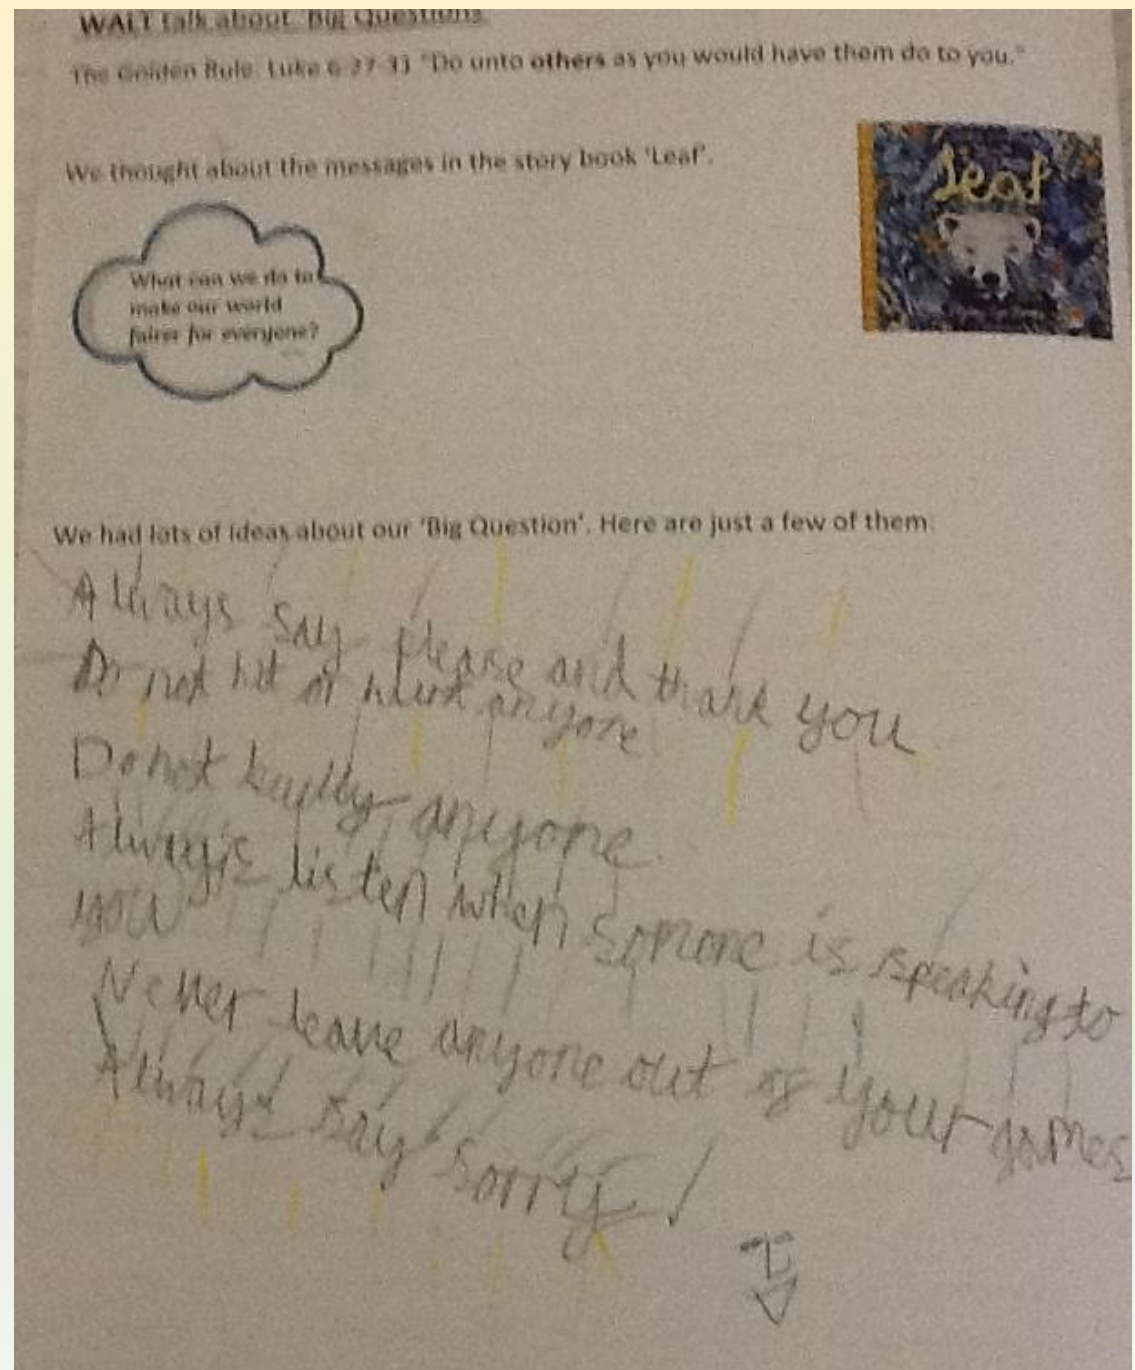 WALT talk about 'Big Questions'
The Golden Rule Luke 6 27-31 "Do unto others as you would have them do to you."
We thought about the messages in the story book 'Leaf'.
Leaf
What can we do to
make our world
fairer for everyone?
We had lots of ideas about our 'Big Question'. Here are just a few of them:
Always say please and thank you
Do not hit or anyone
Do not bully anyone
Always listen when somone is speaking to
you
Never leave anyone out of your games
Always say sorry!